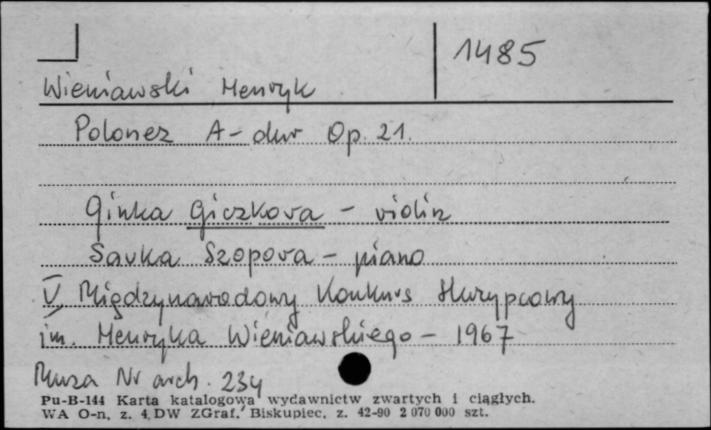 1485
Wieniawski Henryk
Polonez A-dur Op. 21.
Ginka Giczkova - violin
Savka Szopova - piano
V Międzynarodowy Konkurs Skrzypcowy
im. Henryka Wieniawskiego - 1967
Muza Nr arch. 234
Pu-B-144 Karta katalogowa wydawnictw zwartych i ciągłych.
WA O-n, z. 4. DW ZGraf. Biskupiec, z. 42-90 2 070 000 szt.